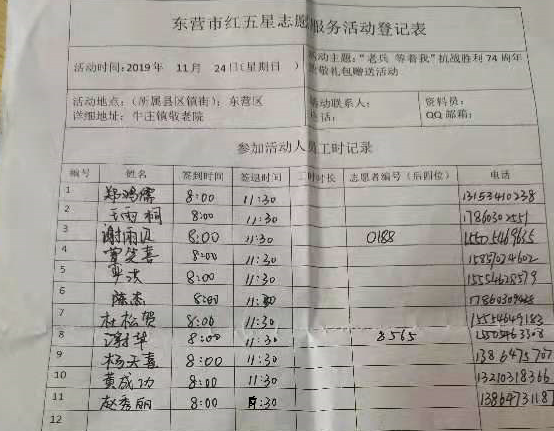 东营市红五星志愿服务活动登记表
活动时间：2019年 11月 24日（星期日 ） 活动主题：“老兵 等着我”抗战胜利74周年
敬礼包赠送活动
活动地点：（所属县区镇街）：东营区 活动联系人： 资料员：
详细地址：牛庄镇敬老院 电话： QQ邮箱：
参加活动人员工时记录
编号 姓名 签到时间 签退时间 工时时长 志愿者编号（后四位） 电话
1 郑鸿儒 8:00 11:30 13153410238
2 王雨桐 8:00 11:30 17860302551
3 谢雨贝 8:00 11:30 0188
4 8:00 11:30 15857024602
5 8:00 11:30 15554628579
6 陈杰 8:00 11:30
7 杜松贺 8:00 11:30 15554649183
8 谢华 8:00 11:30 8565
9 杨天喜 8:00 11:30
10 黄成功 8:00 11:30 13210318366
11 赵秀丽 8:00 11:30 13864731187
12